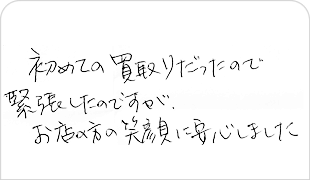 初めての買取りだったので
緊張したのですが、
お店の方の笑顔に安心しました